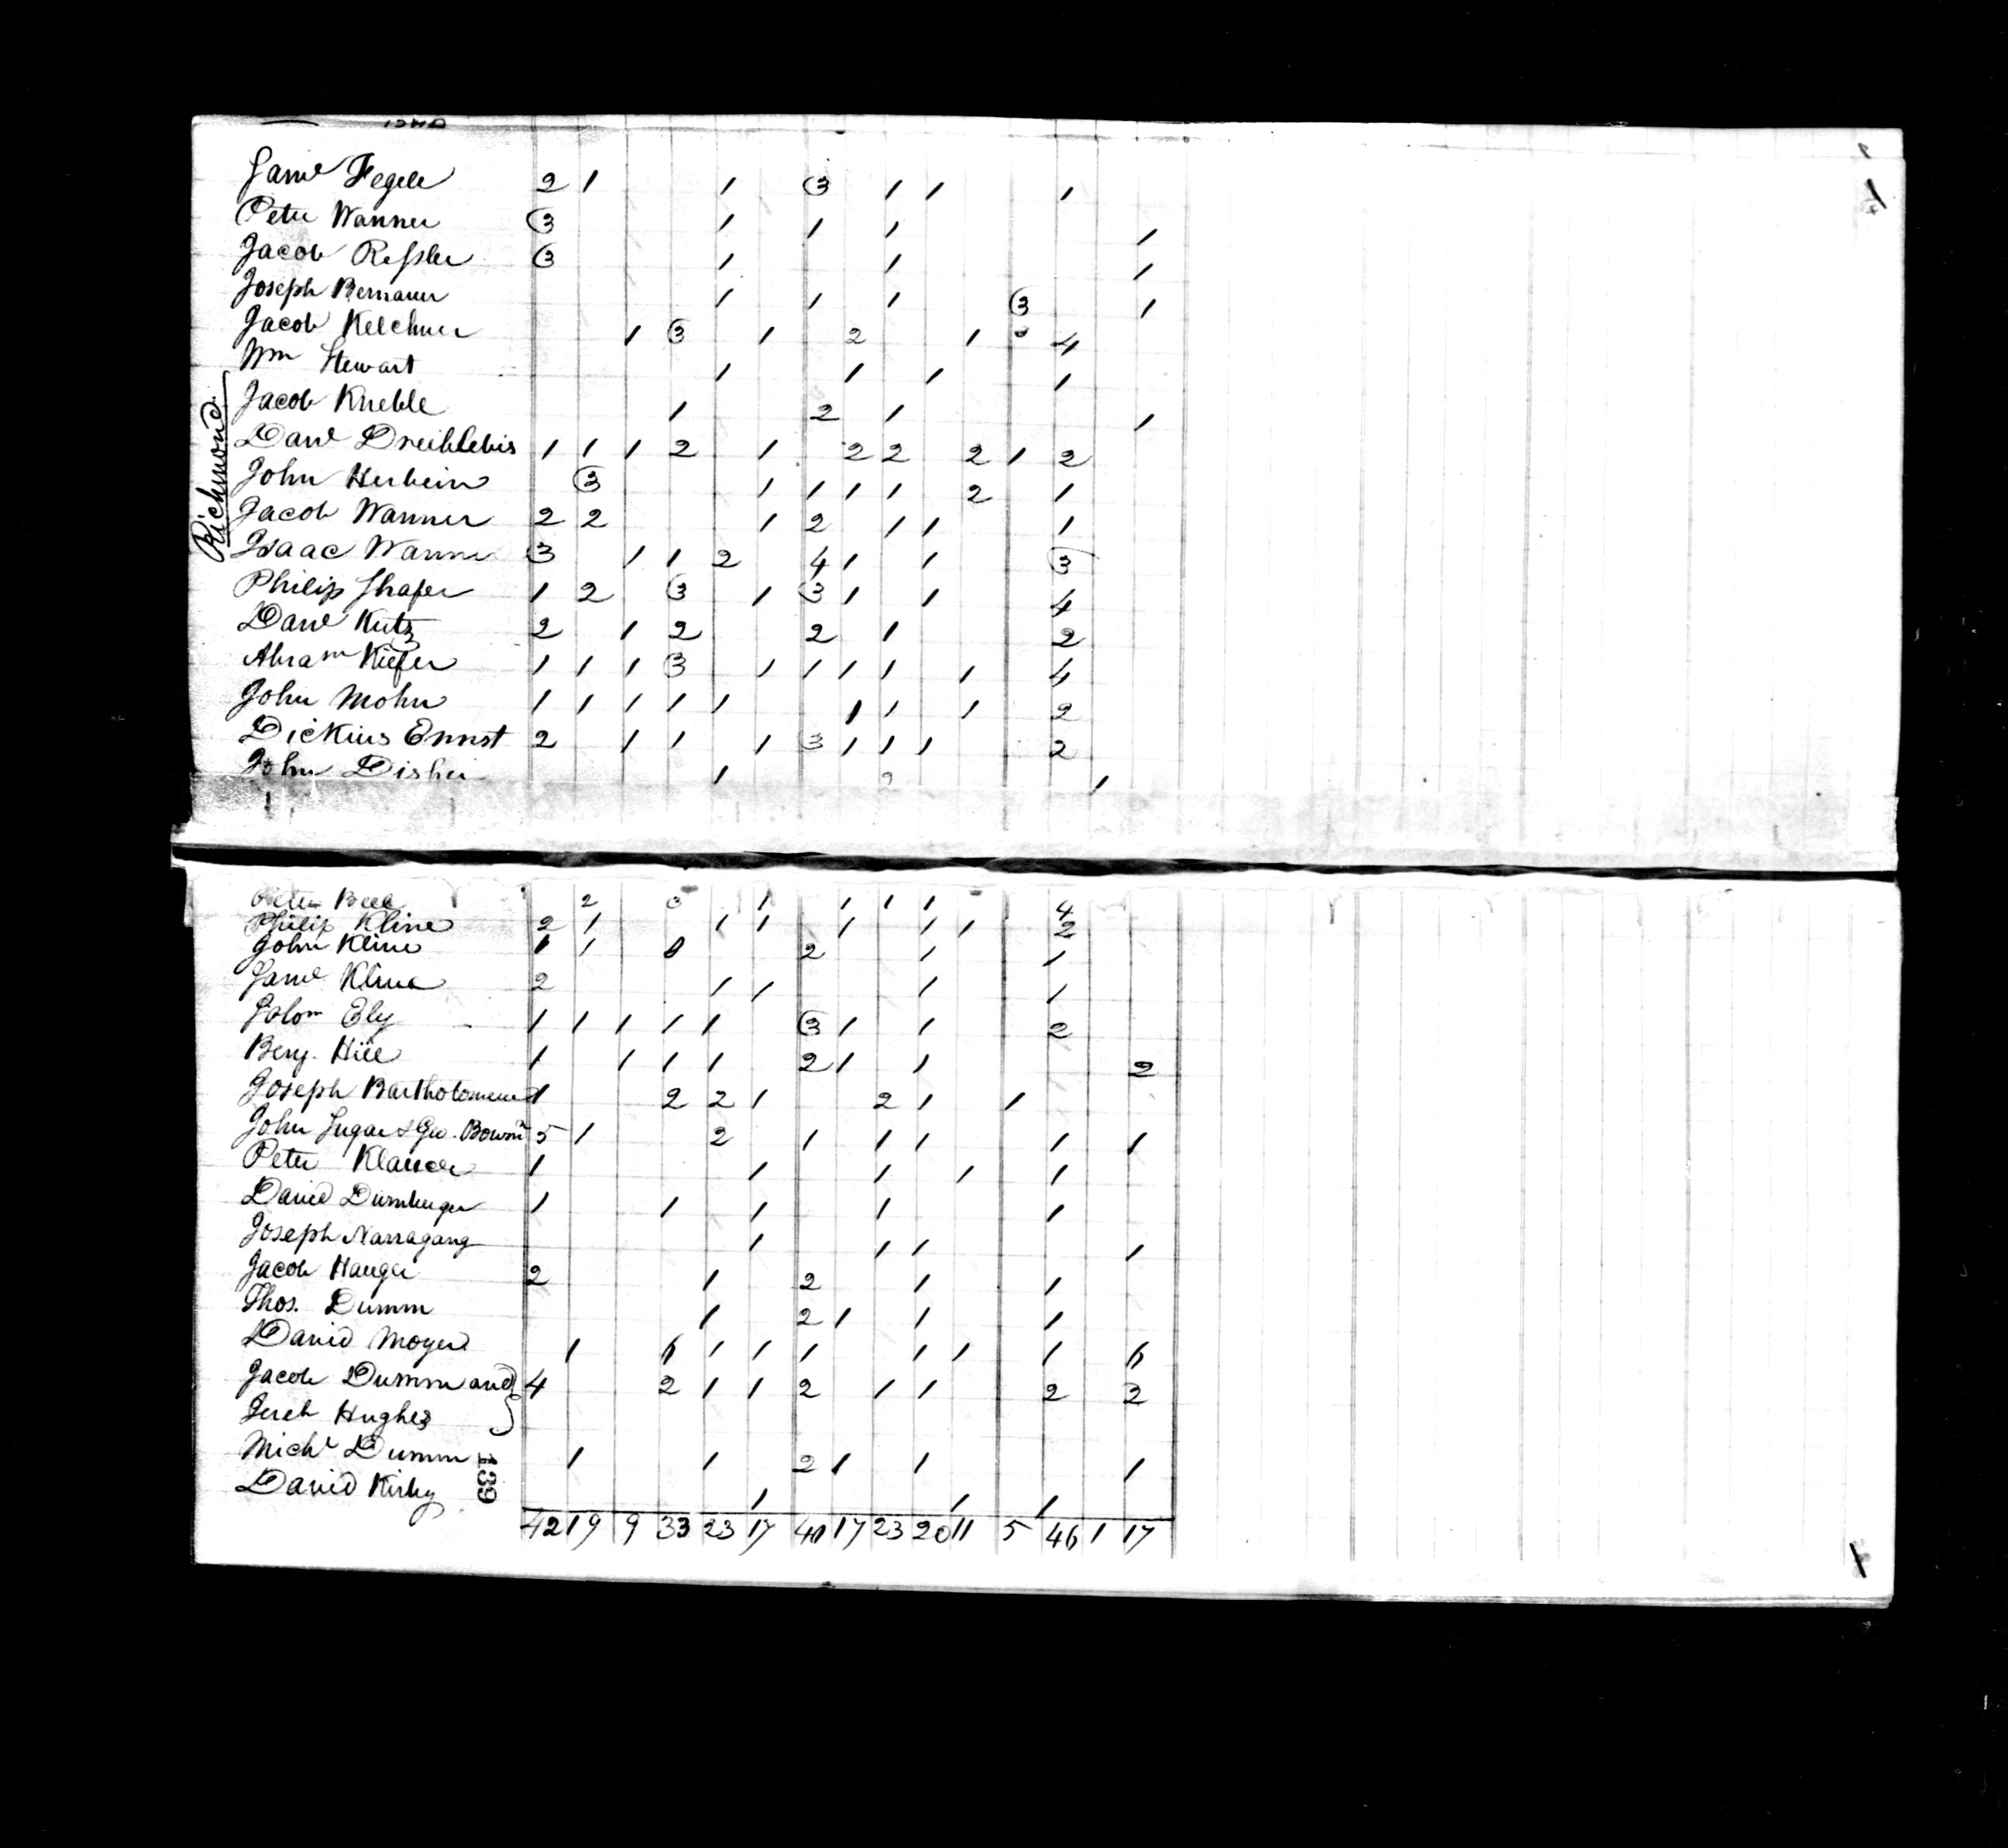 Richmond
Saml Fegele 2 1 1 3 1 1 1
Peter Wanner 3 1 1 1 1
Jacob Ressler 3 1 1 1
Joseph Bernauer 1 1 1 3 1
Jacob Kelchner 1 3 1 2 1 4
Wm Stewart 1 1 1 1
Jacob Kneble 1 2 1 1
Danl Dreiblebis 1 1 1 2 1 2 2 2 1 2
John Herbein 3 1 1 1 1 2 1
Jacob Wanner 2 2 1 2 1 1 1
Isaac Wanner 3 1 1 2 4 1 1 3
Philip Shafer 1 2 3 1 3 1 1 4
Danl Kutz 2 1 2 2 1 2
Abram Kiefer 1 1 1 3 1 1 1 1 1 4
John Mohn 1 1 1 1 1 1 1 1 2
Dickius Ernst 2 1 1 1 3 1 1 1 2
John Disher 1 1
Peter 2 3 1 1 1 1 4
Philip Kline 2 1 1 1 1 1 1 2
John Kline 1 1 2 1 1
Saml Kline 2 1 1 1 1
Solom Ely 1 1 1 1 1 3 1 1 2
Benj. Hill 1 1 1 1 2 1 1 2
Joseph Bartholomew 1 2 2 1 2 1 1
John & Geo. 5 1 2 1 1 1 1 1
Peter Klauder 1 1 1 1 1
David 1 1 1 1 1
Joseph Narragang 1 1 1 1
Jacob 2 1 2 1 1
Thos. Dumm 1 2 1 1 1
David Moyer 1 1 1 1 1 1 1
Jacob Dumm and 4 2 1 1 2 1 1 2 2
Jereh Hughes
Michl Dumm 1 1 2 1 1 1
David Kirby 1 1 1
139
42 19 9 33 23 17 17 23 20 11 5 46 1 17